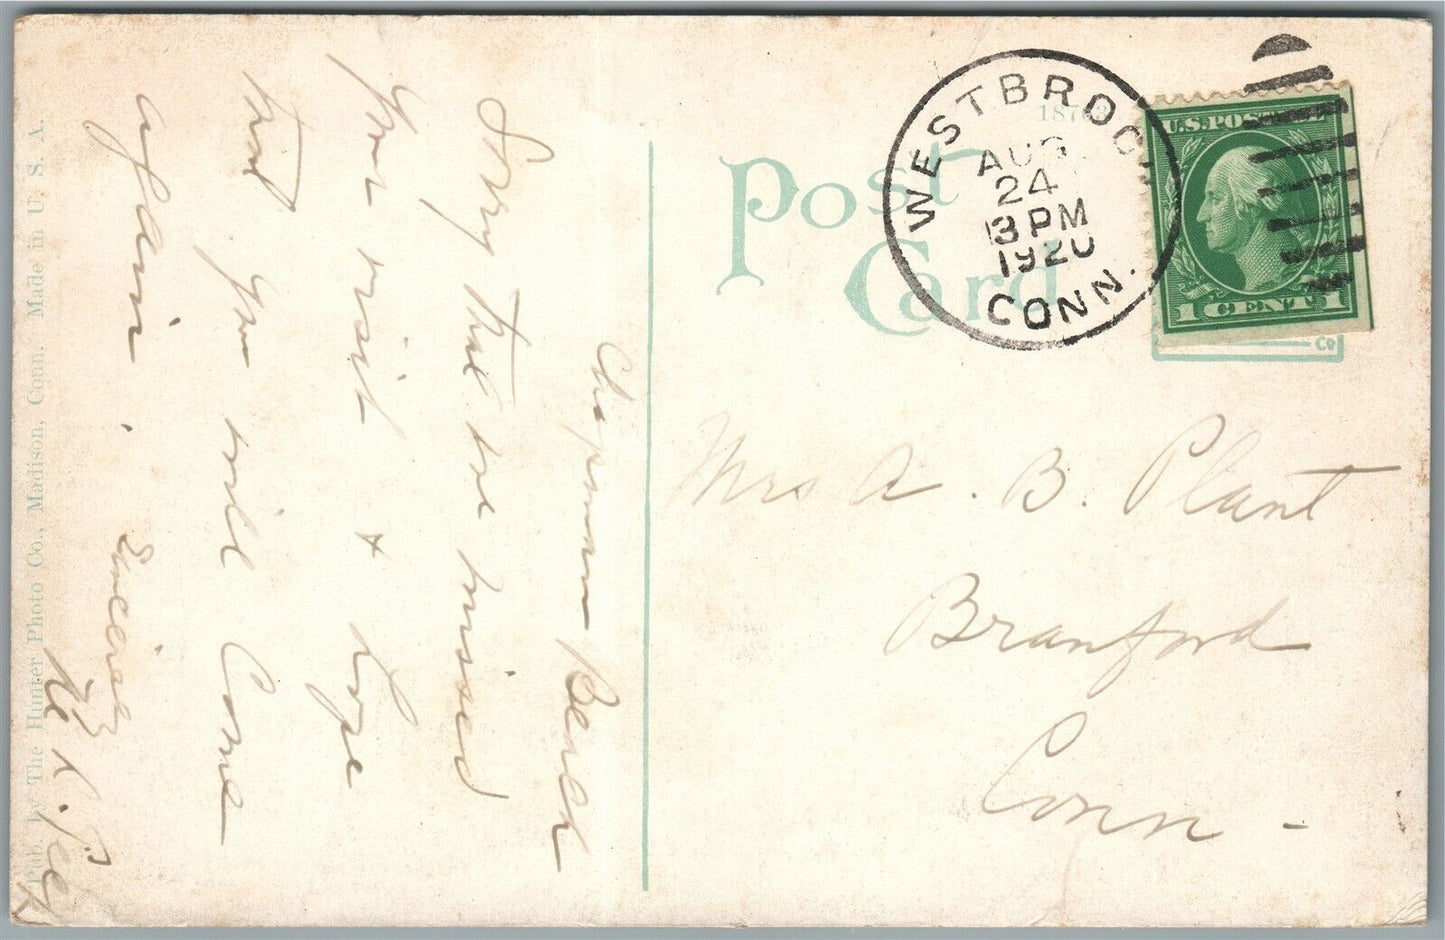 Post
Card
187
WESTBROOK
AUG
24
3 PM
1920
CONN.
U.S. POSTAGE
1 CENT 1
Co
Mrs A. B. Plant
Branford
Conn -
Chapman Beach
Sorry that we missed
your visit + hope
that you will come
again. Sincerely
Pub. by The Hunter Photo Co., Madison, Conn. Made in U. S. A.